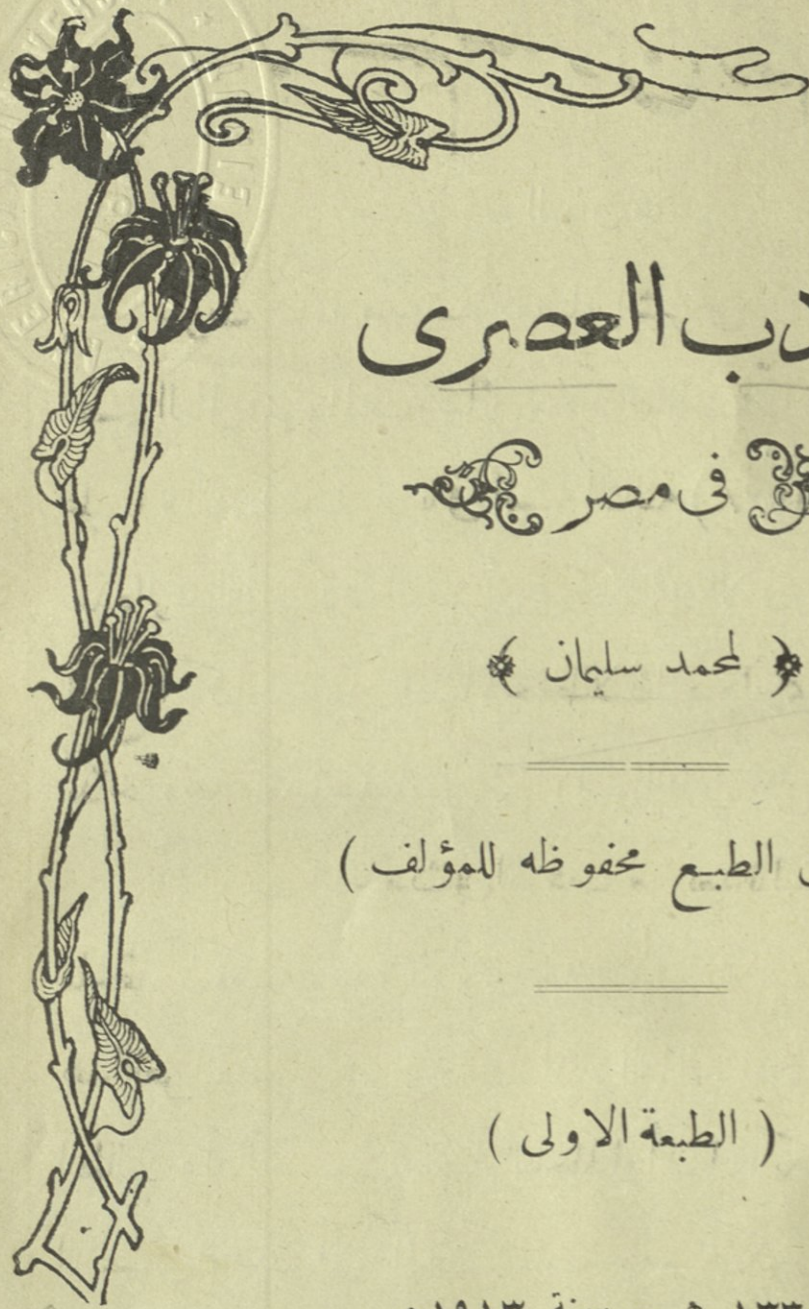 العصرى
فى مصر
﴿ لمحمد سليمان ﴾
الطبع محفوظه للمؤلف )
( الطبعة الاولى )